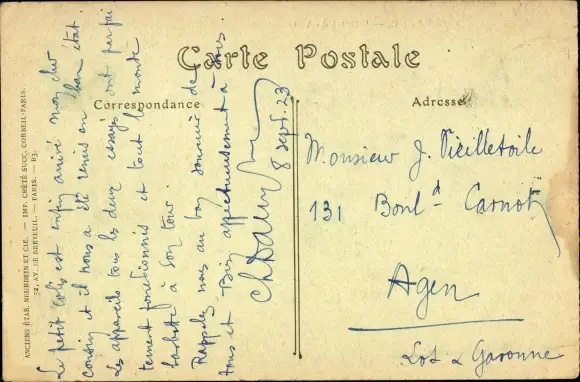 Carte Postale
Correspondance
Adresse
ANCIENS ÉTAB. NEURDEIN ET CIE. — IMP. CRÉTÉ SUCC. CORBEIL-PARIS.
52, AV. DE BRETEUIL. — PARIS. — B3.
Le petit colis est enfin arrivé mon cher
cousin et il nous a été remis en bon état.
Les appareils tous les deux essayés ont parfai
tement fonctionnés et tout le monde
barbote à son tour.
Rappelez nous au bon souvenir de
tous et Bien affectueusement à vous.
8 sept. 23
Monsieur J. Vieilletoile
131 Boulᵈ Carnot
Agen
Lot & Garonne